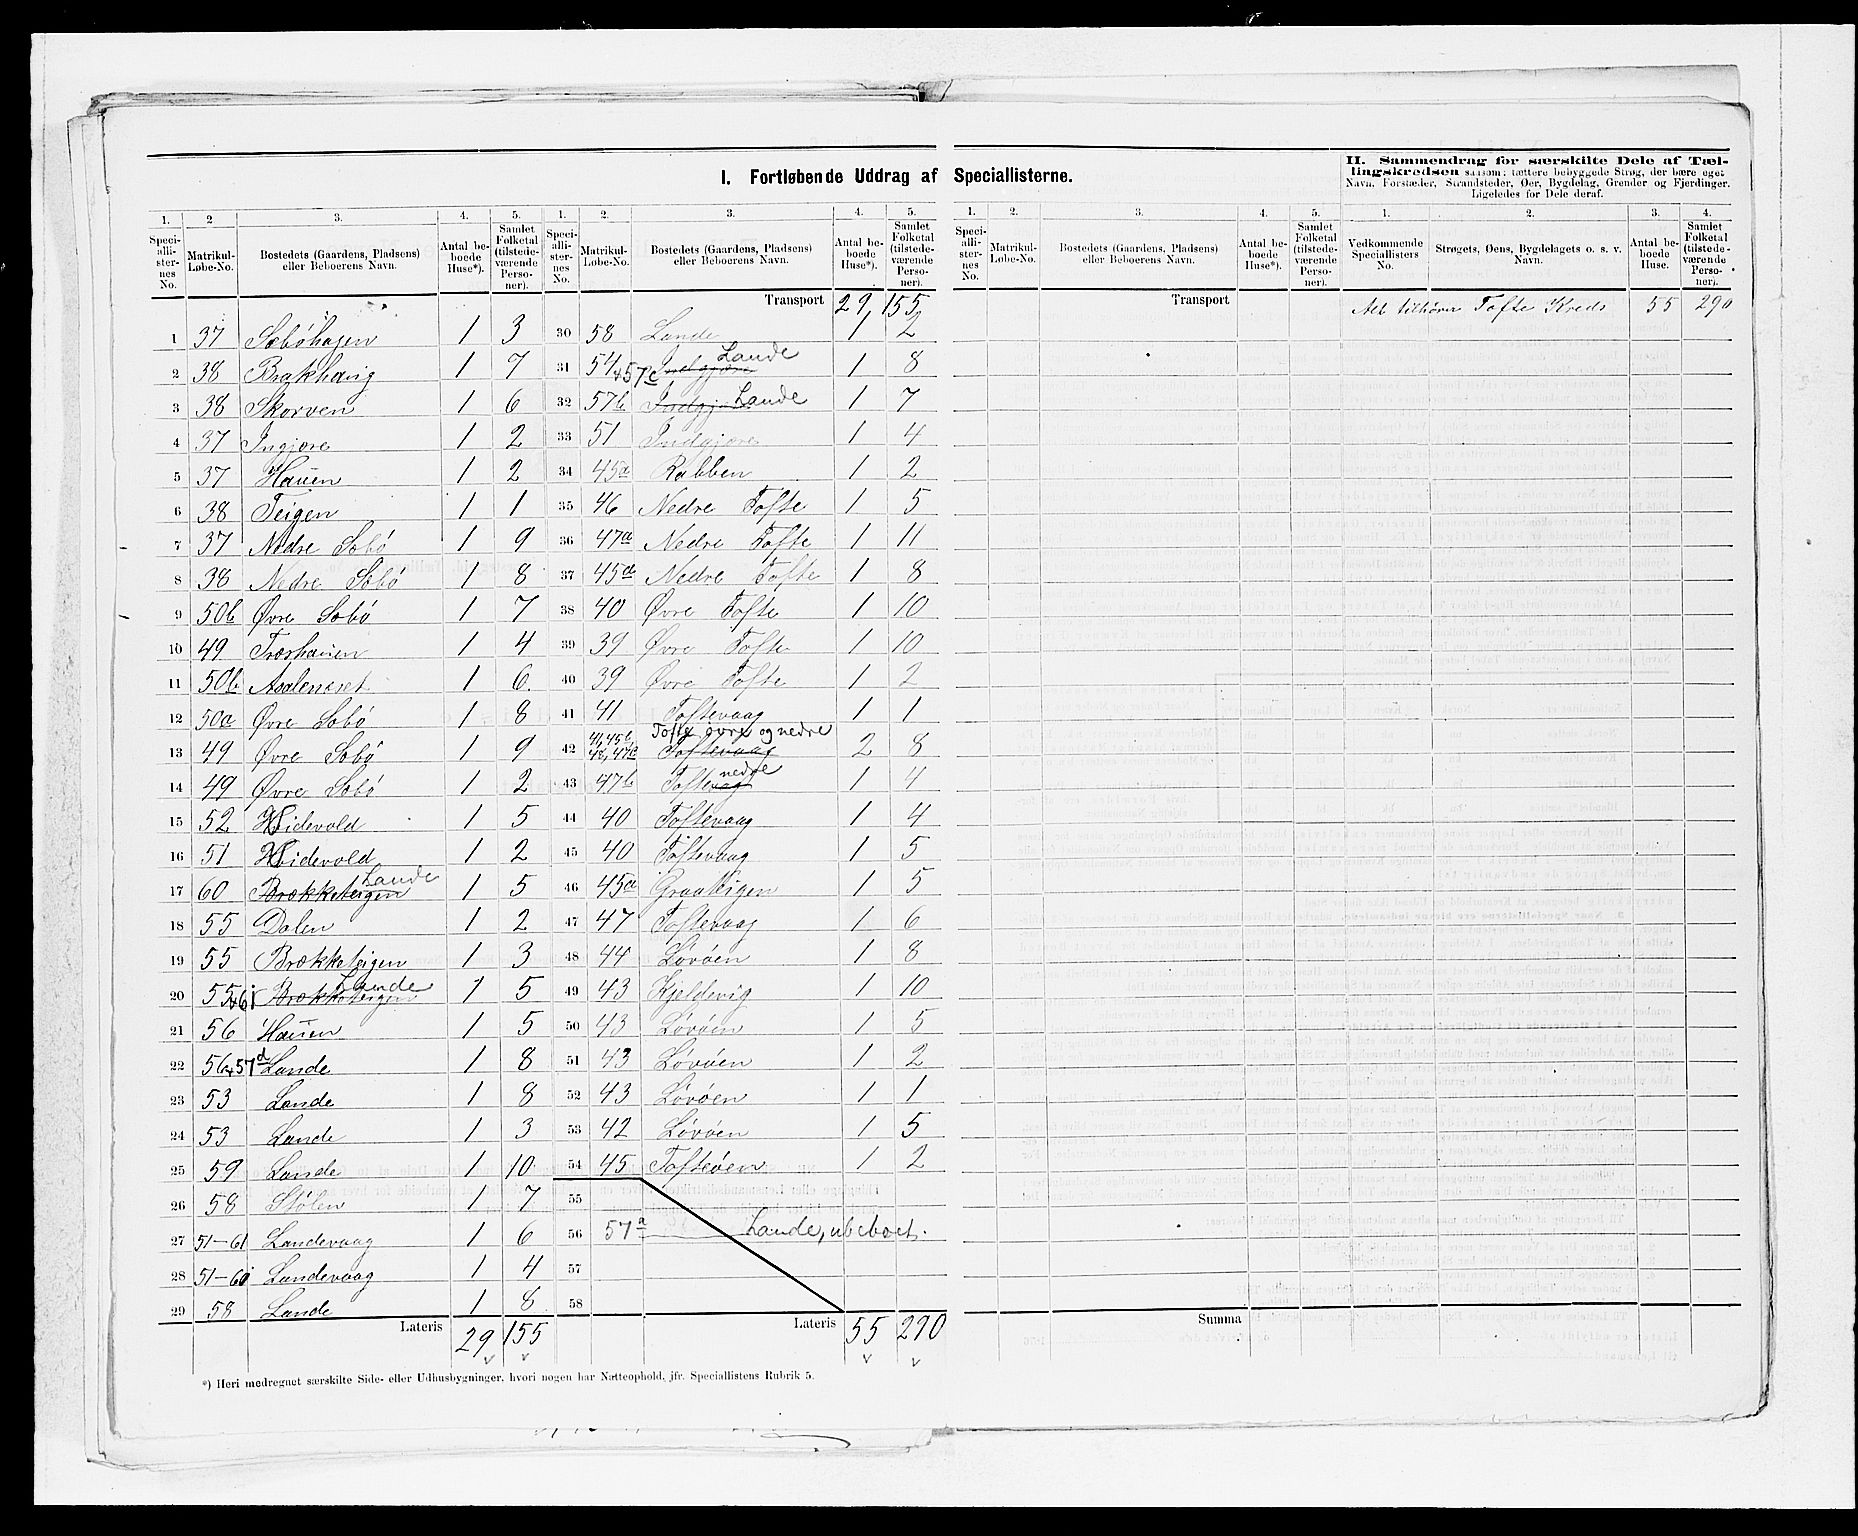 I. Fortløbende Uddrag af Speciallisterne.
II. Sammendrag for særskilte Dele af Tæl-
lingskredsen saasom: tættere bebyggede Strøg, der bære eget
Navn, Forstæder, Strandsteder, Øer, Bygdelag, Grender og Fjerdinger.
Ligeledes for Dele deraf.
1. 2 3. 4. 5. 1. 2. 3. 4. 5. 1. 2. 3. 4. 5. 1. 2. 3. 4.
Speciallisternes No. Matrikul-Løbe-No. Bostedets (Gaardens, Pladsens) eller Beboerens Navn. Antal beboede Huse*). Samlet Folketal (tilstedeværende Personer).
Speciallisternes No. Matrikul-Løbe-No. Bostedets (Gaardens, Pladsens) eller Beboerens Navn. Antal beboede Huse*). Samlet Folketal (tilstedeværende Personer).
Speciallisternes No. Matrikul-Løbe-No. Bostedets (Gaardens, Pladsens) eller Beboerens Navn. Antal beboede Huse*). Samlet Folketal (tilstedeværende Personer).
Vedkommende Speciallisters No. Strøgets, Øens, Bygdelagets o. s. v. Navn. Antal beboede Huse. Samlet Folketal (tilstedeværende Personer).
1 37 Søbøhagen 1 3
2 38 Brakhaug 1 7
3 38 Skorven 1 6
4 37 Ingjøre 1 2
5 37 Hauen 1 2
6 38 Teigen 1 1
7 37 Nedre Søbø 1 9
8 38 Nedre Søbø 1 8
9 50b Øvre Søbø 1 7
10 49 Træshauen 1 4
11 50b Asaleneset 1 6
12 50a Øvre Søbø 1 8
13 49 Øvre Søbø 1 9
14 49 Øvre Søbø 1 2
15 52 Hidevold 1 5
16 51 Hidevold 1 2
17 60 Brækketeigen Lande 1 5
18 55 Dalen 1 2
19 55 Brækketeigen 1 3
20 55+61 Brækketeigen Lande 1 5
21 56 Hauen 1 5
22 56+57d Lande 1 8
23 53 Lande 1 8
24 53 Lande 1 3
25 59 Lande 1 10
26 58 Stølen 1 7
27 51-61 Landevaag 1 6
28 51-61 Landevaag 1 4
29 58 Lande 1 8
Lateris 29 155
Transport 29 155
30 58 Lande 1 2
31 54+57c Indgjøre Lande 1 8
32 57b Indgjøre Lande 1 7
33 51 Indgjøre 1 4
34 45a Rabben 1 2
35 46 Nedre Tofte 1 5
36 47a Nedre Tofte 1 11
37 45a Nedre Tofte 1 8
38 40 Øvre Tofte 1 10
39 39 Øvre Tofte 1 10
40 39 Øvre Tofte 1 2
41 41 Toftevaag 1 1
42 41, 45b, 48, 47c Toftevaag Tofte øvre og nedre 2 8
43 47b Toftevaag nedre 1 4
44 40 Toftevaag 1 4
45 40 Toftevaag 1 5
46 45a Graateigen 1 5
47 47 Toftevaag 1 6
48 44 Løvøen 1 8
49 43 Kjeldevig 1 10
50 43 Løvøen 1 5
51 43 Løvøen 1 2
52 43 Løvøen 1 1
53 42 Løvøen 1 5
54 45 Tofteøen 1 2
55
56 57a Lande, ubeboet.
57
58
Lateris 55 290
Transport
Summa
Alt tilhører Tofte Kreds 55 290
*) Heri medregnet særskilte Side- eller Udhusbygninger, hvori nogen har Natteophold, jfr. Speciallistens Rubrik 5.